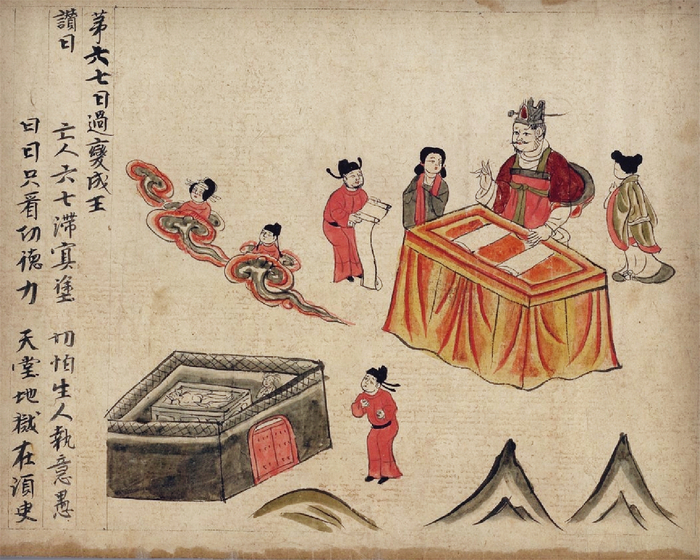 苐六七日過變成王
讚曰 亡人六七滞冥塗 切怕生人執意愚
日日只看功德力 天堂地獄在湏臾